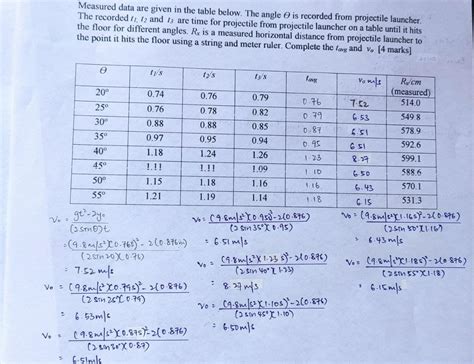 Measured data are given in the table below. The angle Θ is recorded from projectile launcher.
The recorded t₁, t₂ and t₃ are time for projectile from projectile launcher on a table until it hits
the floor for different angles. Rₓ is a measured horizontal distance from projectile launcher to
the point it hits the floor using a string and meter ruler. Complete the tavg and v₀ [4 marks]
Θ t₁/s t₂/s t₃/s tavg v₀ m/s Rₓ/cm (measured)
20° 0.74 0.76 0.79 0.76 7.52 514.0
25° 0.76 0.78 0.82 0.79 6.53 549.8
30° 0.88 0.88 0.85 0.87 6.51 578.9
35° 0.97 0.95 0.94 0.95 6.51 592.6
40° 1.18 1.24 1.26 1.23 8.27 599.1
45° 1.11 1.11 1.09 1.10 6.50 588.6
50° 1.15 1.18 1.16 1.16 6.43 570.1
55° 1.21 1.19 1.14 1.18 6.15 531.3
V₀ = gt²-2y₀ / (2sinΘ)t
= (9.8m/s²)(0.76s)²-2(0.876m) / (2sin20)(0.76)
= 7.52 m/s
V₀ = (9.8m/s²)(0.79s)²-2(0.876) / (2sin25°)(0.79)
= 6.53m/s
V₀ = (9.8m/s²)(0.87s)²-2(0.876) / (2sin30°)(0.87)
= 6.51m/s
V₀ = (9.8m/s²)(0.95)²-2(0.876) / (2sin35°)(0.95)
= 6.51 m/s
V₀ = (9.8m/s²)(1.23s)²-2(0.876) / (2sin40°)(1.23)
= 8.27 m/s
V₀ = (9.8m/s²)(1.10s)²-2(0.876) / (2sin45°)(1.10)
= 6.50m/s
V₀ = (9.8m/s²)(1.16s)²-2(0.876) / (2sin50°)(1.16)
= 6.43 m/s
V₀ = (9.8m/s²)(1.18s)²-2(0.876) / (2sin55°)(1.18)
= 6.15m/s